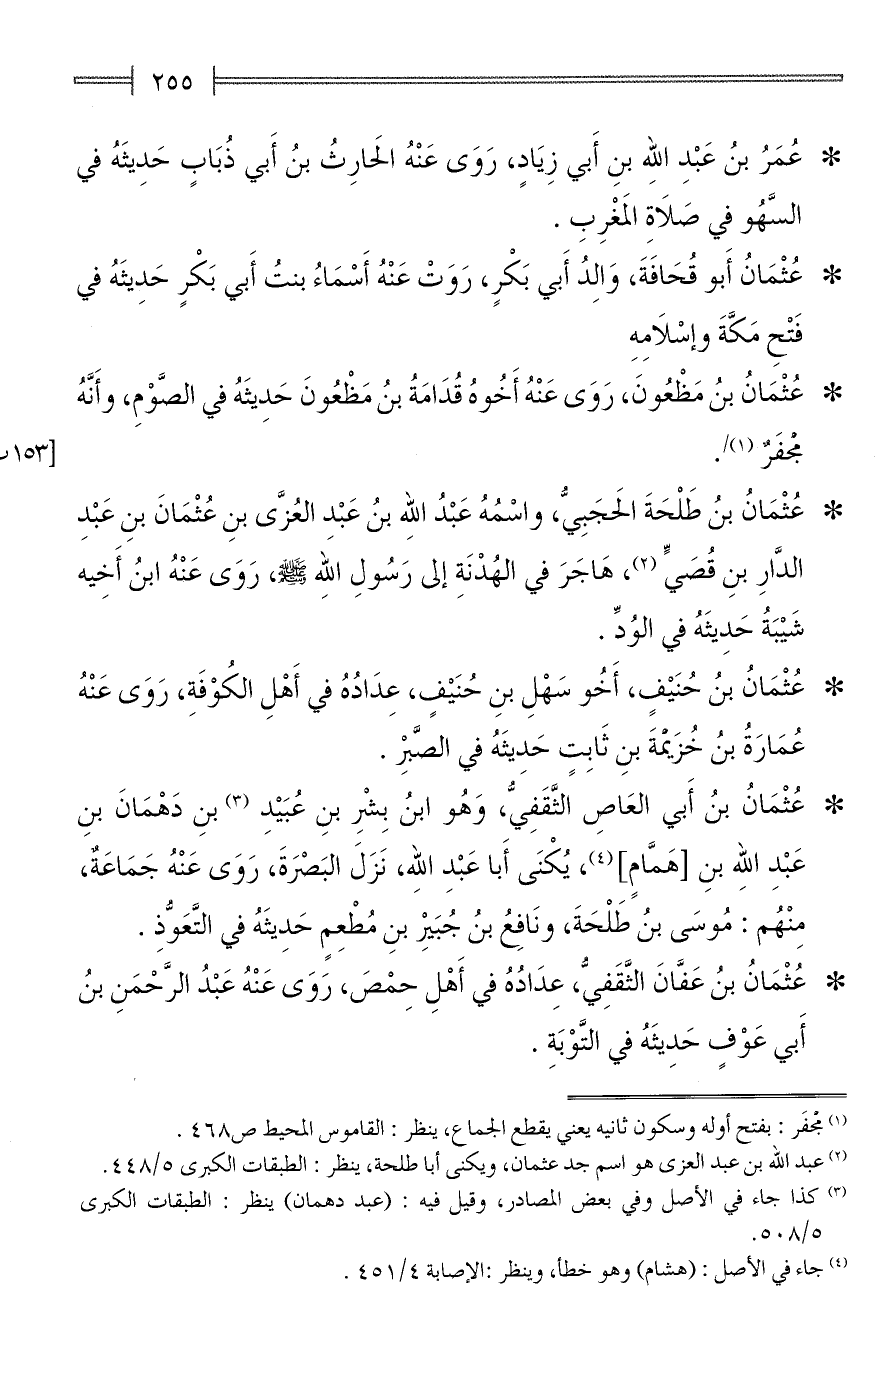 ٢٥٥
* عُمَرُ بنُ عَبْدِ اللهِ بنِ أَبي زِيَادٍ، رَوَى عَنْهُ الحَارِثُ بنُ أَبي ذُبَابٍ حَدِيثَهُ في
السَّهُو في صَلَاةِ المَغْرِبِ .
* عُثْمَانُ أَبو قُحَافَةَ، وَالِدُ أَبي بَكْرٍ، رَوَتْ عَنْهُ أَسْمَاءُ بنتُ أَبي بَكْرٍ حَدِيثَهُ في
فَتْحِ مَكَّةَ وإسْلَامِهِ
* عُثْمَانُ بنُ مَظْعُونَ، رَوَى عَنْهُ أَخُوهُ قُدَامَةُ بنُ مَظْعُونَ حَدِيثَهُ في الصَّوْمِ، وأَنَّهُ
مَجْفَرٌ (١)/.
[١٥٣ب
* عُثْمَانُ بنُ طَلْحَةَ الحَجَبِيُّ، واسْمُهُ عَبْدُ اللهِ بنُ عَبْدِ العُزَّى بنِ عُثْمَانَ بنِ عَبْدِ
الدَّارِ بنِ قُصَيٍّ (٢)، هَاجَرَ في الهُدْنَةِ إلى رَسُولِ اللهِ ﷺ، رَوَى عَنْهُ ابنُ أَخيه
شَيْبَةُ حَدِيثَهُ في الوُدِّ .
* عُثْمَانُ بنُ حُنَيْفٍ، أَخُو سَهْلِ بنِ حُنَيْفٍ، عِدَادُهُ في أَهْلِ الكُوْفَةِ، رَوَى عَنْهُ
عُمَارَةُ بنُ خُزَيْمَةَ بنِ ثَابِتٍ حَدِيثَهُ في الصَّبْرِ .
* عُثْمَانُ بنُ أَبي العَاصِ الثَّقَفِيُّ، وَهُو ابنُ بِشْرِ بنِ عُبَيْدِ (٣) بنِ دَهْمَانَ بنِ
عَبْدِ اللهِ بنِ [هَمَّامٍ](٤)، يُكْنَى أَبا عَبْدِ اللهِ، نَزَلَ البَصْرَةَ، رَوَى عَنْهُ جَمَاعَةٌ،
مِنْهُم : مُوسَى بنُ طَلْحَةَ، ونَافِعُ بنُ جُبَيْرِ بنِ مُطْعِمٍ حَدِيثَهُ في التَّعَوُّذِ .
* عُثْمَانُ بنُ عَفَّانَ الثَّقَفِيُّ، عِدَادُهُ في أَهْلِ حِمْصَ، رَوَى عَنْهُ عَبْدُ الرَّحْمَنِ بنُ
أَبي عَوْفٍ حَدِيثَهُ في التَّوْبَةِ .
(١) مَجْفَر : بفتح أوله وسكون ثانيه يعني يقطع الجماع، ينظر : القاموس المحيط ص٤٦٨ .
(٢) عبد الله بن عبد العزى هو اسم جد عثمان، ويكنى أبا طلحة، ينظر : الطبقات الكبرى ٤٤٨/٥.
(٣) كذا جاء في الأصل وفي بعض المصادر، وقيل فيه : (عبد دهمان) ينظر : الطبقات الكبرى
٥٠٨/٥.
(٤) جاء في الأصل : (هشام) وهو خطأ، وينظر :الإصابة ٤٥١/٤ .